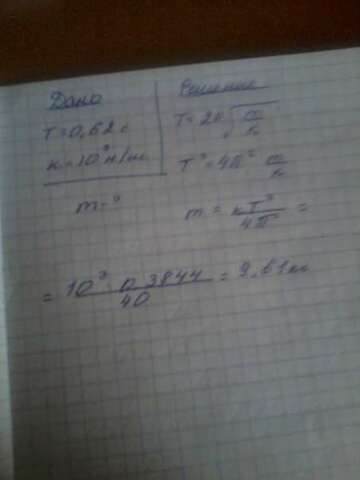 Дано
T = 0,62 с
к = 10³ н/м
m = ?
Решение
T = 2π √m/к
T² = 4π² m/к
m = кT²/4π² =
= 10³ · 0,3844/40 = 9,61 кг